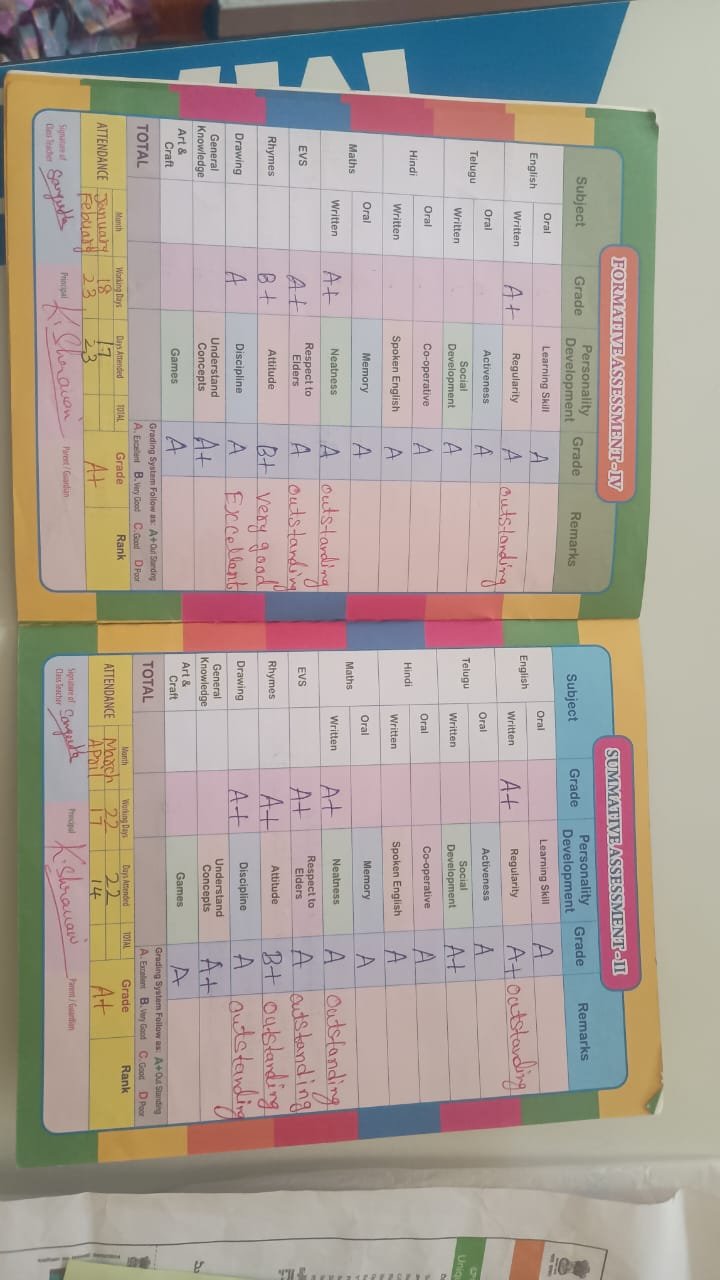 FORMATIVE ASSESSMENT - IV
Subject Grade Personality Development Grade Remarks
English Oral Learning Skill A
Written A+ Regularity A outstanding
Telugu Oral Activeness A
Written Social Development A
Hindi Oral Co-operative A
Written Spoken English A
Maths Oral Memory A
Written A+ Neatness A outstanding
EVS A+ Respect to Elders A outstanding
Rhymes B+ Attitude B+ very good
Drawing A Discipline A Excellent
General Knowledge Understand Concepts A+
Art & Craft Games A
TOTAL Grading System Follow as: A+ Out Standing
A. Excellent B. Very Good C. Good D Poor
ATTENDANCE Month Working Days Days Attended TOTAL Grade Rank
January 18 17 A+
Febuary 23 23
Signature of Class Teacher Sangeetha Principal K. Shravani Parent / Guardian
SUMMATIVE ASSESSMENT - II
Subject Grade Personality Development Grade Remarks
English Oral Learning Skill A
Written A+ Regularity A+ outstanding
Telugu Oral Activeness A
Written Social Development A+
Hindi Oral Co-operative A
Written Spoken English A
Maths Oral Memory A
Written A+ Neatness A Outstanding
EVS A+ Respect to Elders A outstanding
Rhymes A+ Attitude B+ outstanding
Drawing A+ Discipline A outstanding
General Knowledge Understand Concepts A+
Art & Craft Games A
TOTAL Grading System Follow as: A+ Out Standing
A. Excellent B. Very Good C. Good D Poor
ATTENDANCE Month Working Days Days Attended TOTAL Grade Rank
March 22 22 A+
April 17 14
Signature of Class Teacher Sangeetha Principal K. Shravani Parent / Guardian